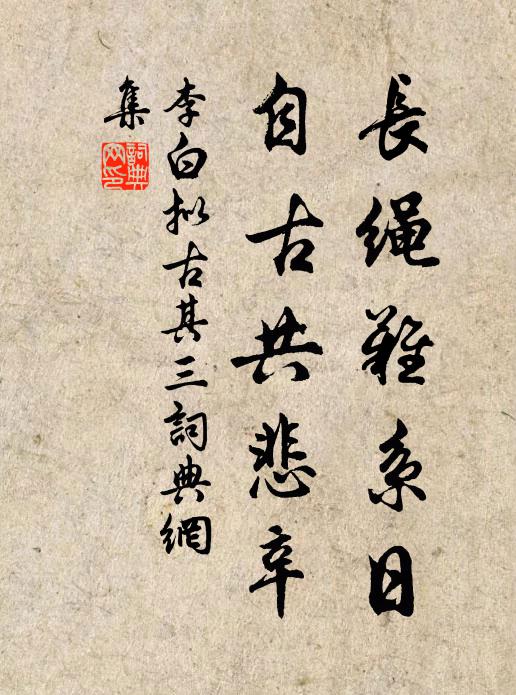 長繩難系日
自古共悲辛
李白拟古其三詞典網
集
詞典網印